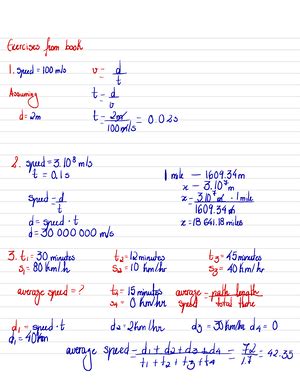 Exercises from book
1. speed = 100 m/s v = d/t
Assuming t = d/v
d = 2m t = 2m/100m/s = 0.02s
2. speed = 3.10⁸ m/s
t = 0.1s 1 mile — 1609.34m
x — 3.10⁷m
speed = d/t x = 3.10⁷ . 1 mile / 1609.34
d = speed . t
d = 30 000 000 m/s x = 18 641.18 miles
3. t₁ = 30 minutes t₂ = 12 minutes t₃ = 45 minutes
s₁ = 80 km/hr s₂ = 10 km/hr s₃ = 40 km/hr
average speed = ? t₄ = 15 minutes average speed = path length / total time
s₄ = 0 km/hr
d₁ = speed . t d₂ = 2 km/hr d₃ = 30 km/hr d₄ = 0
d₁ = 40 km
average speed = d₁ + d₂ + d₃ + d₄ / t₁ + t₂ + t₃ + t₄ = 72/1.7 = 42.35